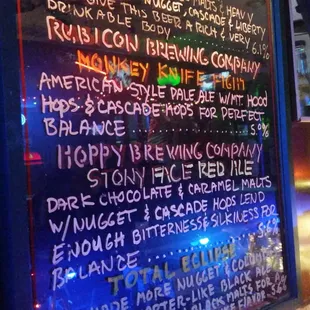 MALTS & HEAVY
GIVE THIS BEER A RICH & VERY
NUGGET CASCADE & LIBERTY
DRINKABLE BODY 6.1%
RUBICON BREWING COMPANY
MONKEY KNIFE FIGHT
AMERICAN STYLE PALE ALE W/MT. HOOD
HOPS & CASCADE HOPS FOR PERFECT
BALANCE ............ 5.0%
HOPPY BREWING COMPANY
STONY FACE RED ALE
DARK CHOCOLATE & CARAMEL MALTS
W/NUGGET & CASCADE HOPS LEND
ENOUGH BITTERNESS & SILKINESS FOR
BALANCE ............ 5.6%
TOTAL ECLIPSE
MORE NUGGET &
-LIKE BLACK ALE
BLACK MALTS FOR A
FLAVOR 5.6%